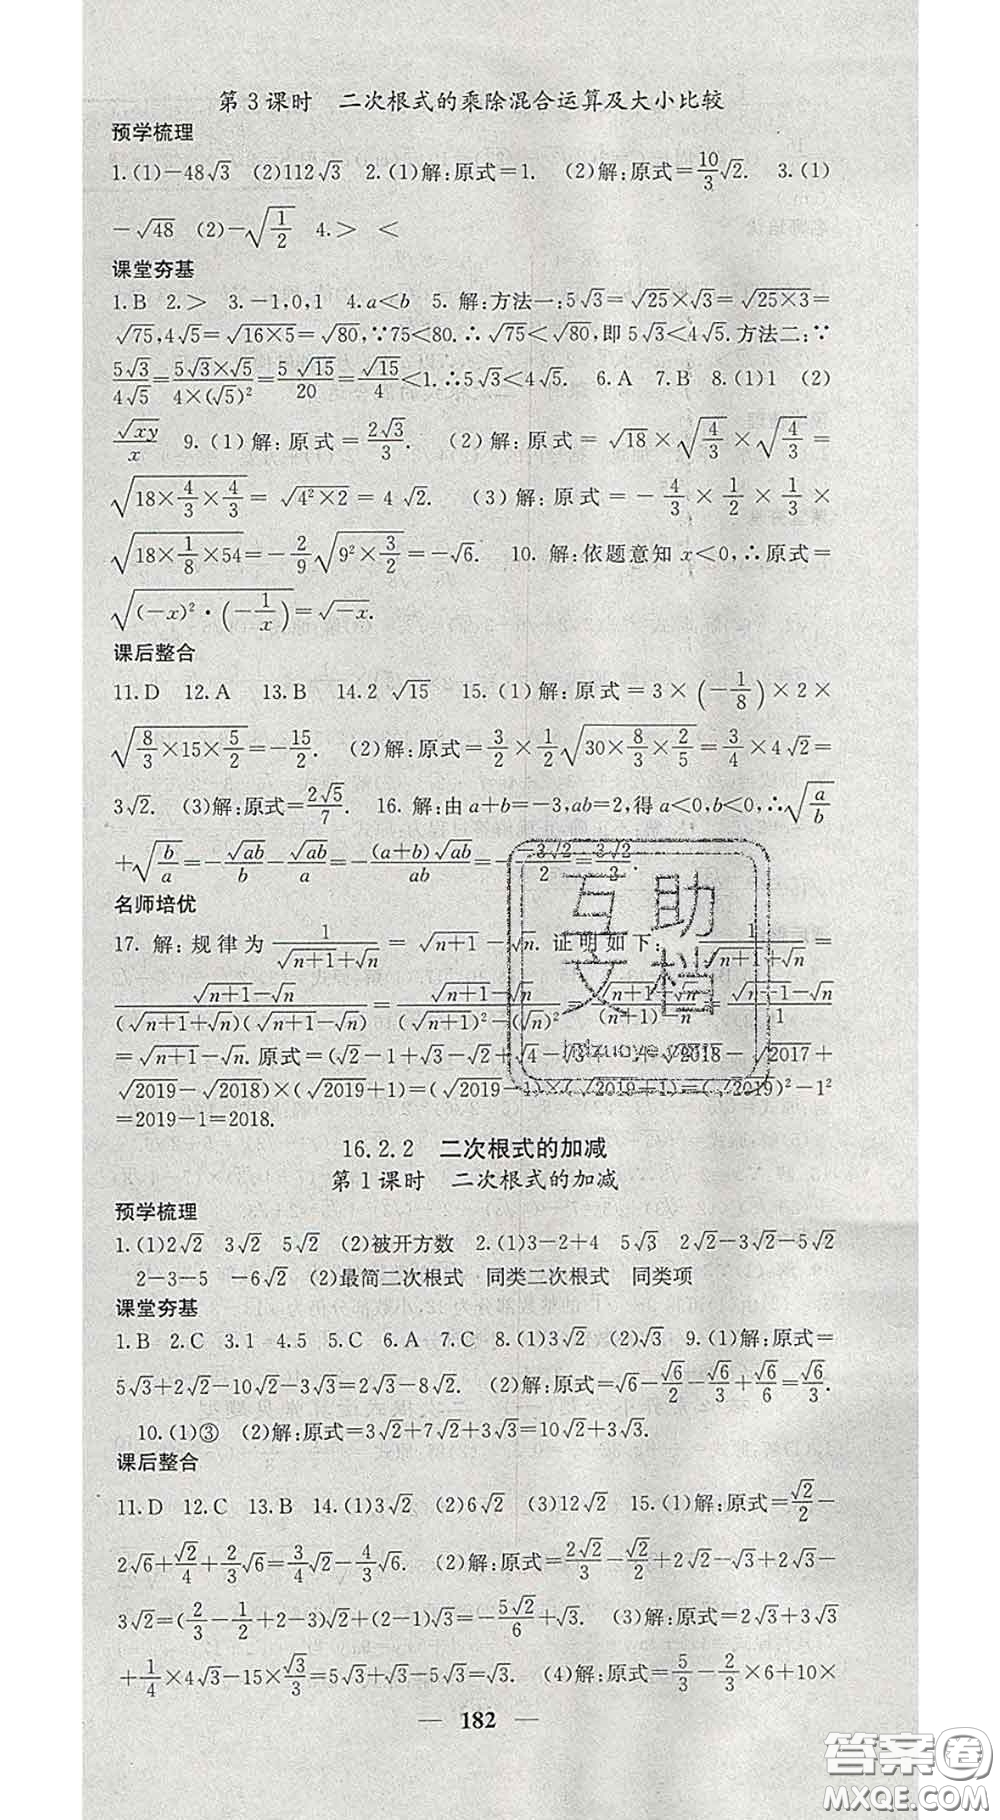 第3课时 二次根式的乘除混合运算及大小比较
预学梳理
1.(1)-48√3 (2)112√3 2.(1)解:原式=1. (2)解:原式=10/3√2. 3.(1)
-√48 (2)-√(1/2) 4.> <
课堂夯基
1.B 2.> 3.-1,0,1 4.a<b 5. 解:方法一:5√3=√25×√3=√(25×3)=
√75,4√5=√(16×5)=√80,∵75<80.∴√75<√80,即5√3<4√5.方法二:∵
5√3/4√5=5√3×√5/4×(√5)²=5√15/20=√15/4<1.∴5√3<4√5. 6.A 7.B 8.(1)1 (2)
√xy/x 9.(1)解:原式=2√3/3. (2)解:原式=√18×√(4/3)×√(4/3)=
√(18×4/3×4/3)=√(4²×2)=4√2. (3)解:原式=-4/3×1/2×1/3×
√(18×1/8×54)=-2/9√(9²×3/2)=-√6. 10. 解:依题意知x<0,∴原式=
√((-x)²·(-1/x))=√-x.
课后整合
11.D 12.A 13.B 14.2√15 15.(1)解:原式=3×(-1/8)×2×
√(8/3×15×5/2)=-15/2. (2)解:原式=3/2×1/2√(30×8/3×2/5)=3/4×4√2=
3√2. (3)解:原式=2√5/7. 16. 解:由a+b=-3,ab=2,得a<0,b<0,∴√(a/b)
+√(b/a)=-√ab/b-√ab/a=-(a+b)√ab/ab=--3√2/2=3√2/2.
名师培优
17. 解:规律为1/(√(n+1)+√n)=√(n+1)-√n. 证明如下: 1/(√(n+1)+√n)=
(√(n+1)-√n)/((√(n+1)+√n)(√(n+1)-√n))=(√(n+1)-√n)/((√(n+1))²-(√n)²)=(√(n+1)-√n)/((n+1)-n)=(√(n+1)-√n)/1
=√(n+1)-√n. 原式=(√2-1+√3-√2+√4-√3+…+√2018-√2017+
√2019-√2018)×(√2019+1)=(√2019-1)×(√2019+1)=(√2019)²-1²
=2019-1=2018.
16.2.2 二次根式的加减
第1课时 二次根式的加减
预学梳理
1.(1)2√2 3√2 5√2 (2)被开方数 2.(1)3-2+4 5√3 2√2-3√2-5√2
2-3-5 -6√2 (2)最简二次根式 同类二次根式 同类项
课堂夯基
1.B 2.C 3.1 4.5 5.C 6.A 7.C 8.(1)3√2 (2)√3 9.(1)解:原式=
5√3+2√2-10√2-3√3=2√3-8√2. (2)解:原式=√6-√6/2-√6/3+√6/6=√6/3.
10.(1)③ (2)解:原式=3√2+7√2+3√3=10√2+3√3.
课后整合
11.D 12.C 13.B 14.(1)3√2 (2)6√2 (3)12√2 15.(1)解:原式=√2/2-
2√6+√2/4+2/3√6=3/4√2-4/3√6. (2)解:原式=2√2/3-√2/2+2√2-√3+2√3-
3√2=(2/3-1/2+2-3)√2+(2-1)√3=-5√2/6+√3. (3)解:原式=2√3+3√3
+1/4×4√3-15×√3/3=5√3+√3-5√3=√3. (4)解:原式=5/3-2/3×6+10×
— 182 —
互助文档
答案圈
MXQE.COM